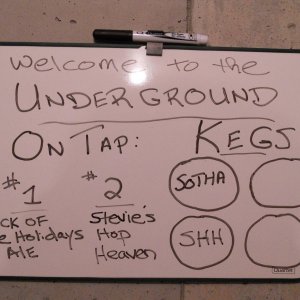 Welcome to the
UNDERGROUND
ON TAP: KEGS
#1 #2
CK OF Stevie's
e Holidays Hop
ALE Heaven
SOTHA
SHH
Quartet